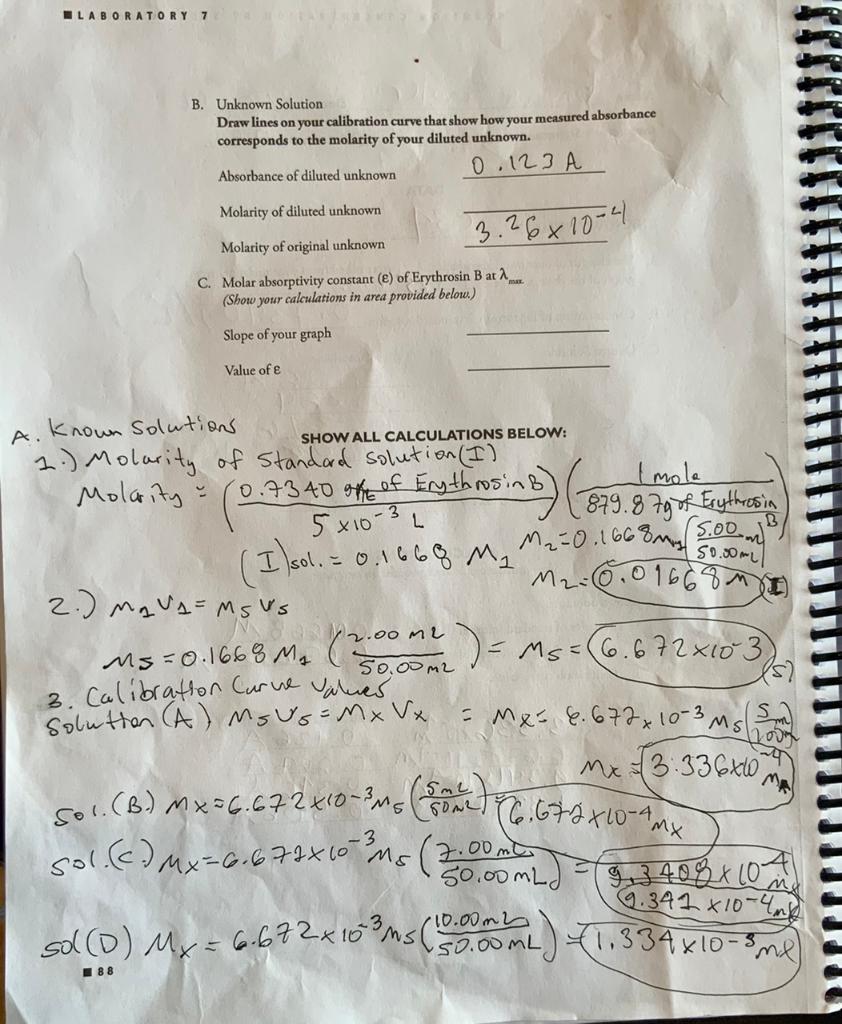 ■ LABORATORY 7
B. Unknown Solution
Draw lines on your calibration curve that show how your measured absorbance
corresponds to the molarity of your diluted unknown.
Absorbance of diluted unknown 0.123 A
Molarity of diluted unknown
Molarity of original unknown 3.26 x 10-4
C. Molar absorptivity constant (ε) of Erythrosin B at λmax.
(Show your calculations in area provided below.)
Slope of your graph
Value of ε
A. Known Solutions
SHOW ALL CALCULATIONS BELOW:
1.) Molarity of Standard Solution (I)
Molarity = (0.7340 of Erythrosin B / 5 x10-3 L) (1 mole / 879.87g of Erythrosin B)
(I) sol. = 0.1668 M1
M2=0.1668 M1 (5.00 ml / 50.00mL)
M2=0.01668 M (I)
2.) M1V1 = M5V5
M5 = 0.1668 M1 (2.00 mL / 50.00 mL) = M5 = 6.672x10-3 (5)
3. Calibration Curve Values
Solution (A) M5V5 = MxVx = Mx= 6.672 x 10-3 M5 (5 ml / 100ml)
Mx = 3.336x10-4 Mx
Sol. (B.) Mx=6.672 x10-3 M5 (5mL / 50mL) = 6.672 x10-4 Mx
Sol. (C.) Mx=6.672x10-3 M5 (7.00 mL / 50.00 mL) = 9.3408 x 10-4 Mx
9.341 x10-4 Mx
Sol (D) Mx = 6.672 x 10-3 M5 (10.00 mL / 50.00 mL) = 1.334 x10-3 Mx
■ 88